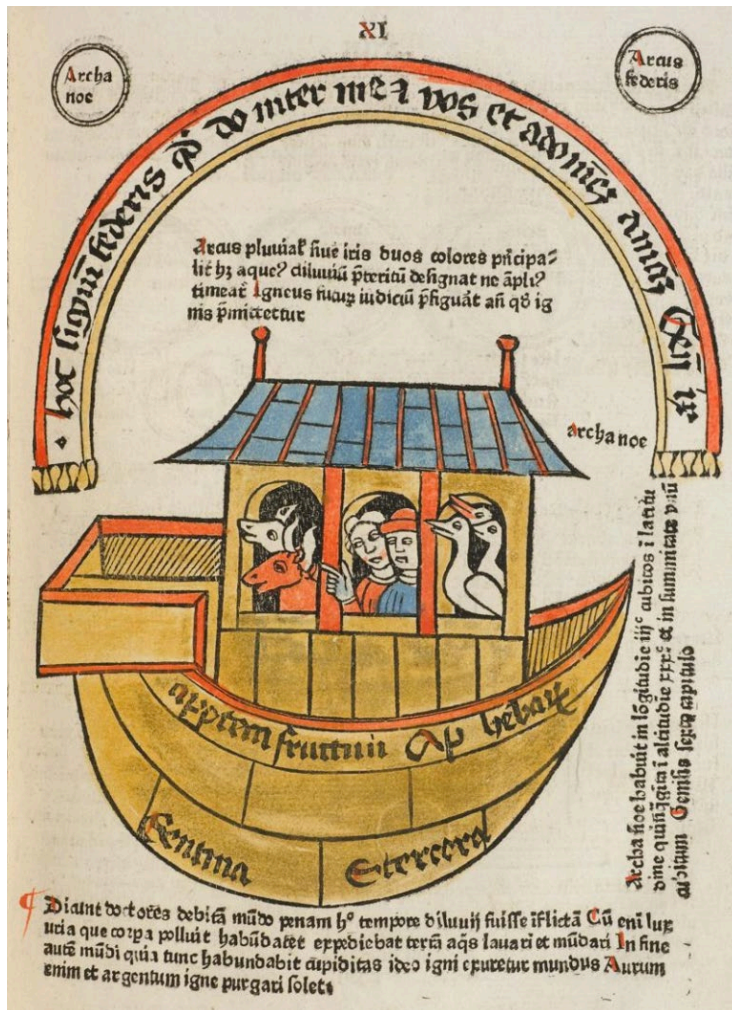 XI
Archa
noe
Arcus
federis
hoc signū federis qd̄ do inter me ⁊ vos et ad omēʒ amāʒ Geñ ix
Arcus pluuial̄ siue iris duos colores p̄ncipa⸗
lit hʒ aque⁹ diluuiū p̄teritū designat ne āpli⁹
timeat̄ Igneus futuꝝ iudiciū p̄figurāt añ qd̄ ig
nis p̄mittetur
archa noe
Archa noe habuit in lōgitudīe iijᶜ cubitos ī latitu
dine quīq̄gīta ī altitudīe xxxᵃ et in sum̄itate vnū
cubitum Genesis sexto capitulo
fructuū Ap̄ herbaꝝ
Sentina
Stercora
Dicunt doctores debitā mūdo penam h° tempore diluuij fuisse īflictā Cū eni lux
uria que corpa polluit habūdaret expediebat terrā aq̄s lauari et mūdari In fine
autē mūdi quia tunc habundabit cupiditas ideo igni exuretur mundus Aurum
enim et argentum igne purgari solet